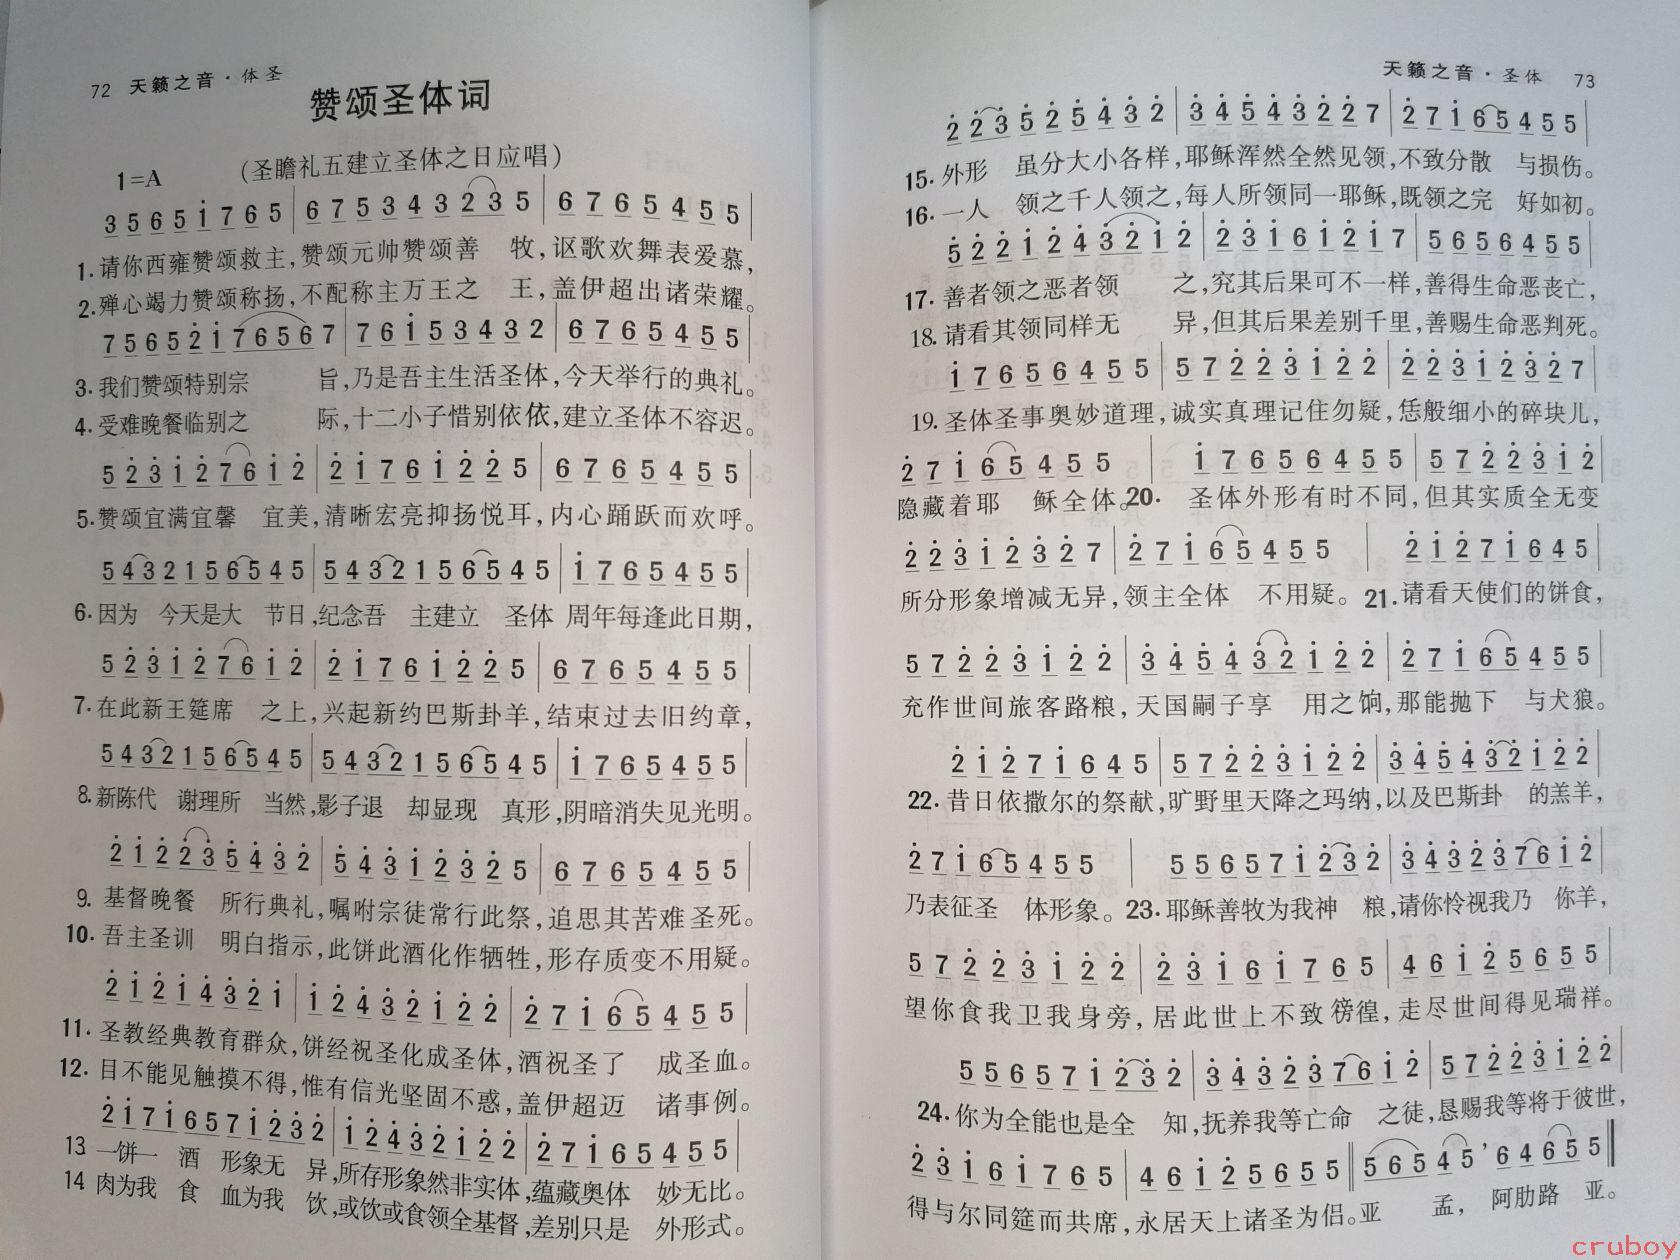 72 天籁之音·体圣
赞颂圣体词
1=A (圣瞻礼五建立圣体之日应唱)
3 5 6 5 i 7 6 5 | 6 7 5 3 4 3 2 3 5 | 6 7 6 5 4 5 5 |
1.请你西雍赞颂救主,赞颂元帅赞颂善 牧,讴歌欢舞表爱慕,
2.殚心竭力赞颂称扬,不配称主万王之 王,盖伊超出诸荣耀。
7 5 6 5 2̇ i 7 6 5 6 7 | 7 6 i 5 3 4 3 2 | 6 7 6 5 4 5 5 |
3.我们赞颂特别宗 旨,乃是吾主生活圣体,今天举行的典礼。
4.受难晚餐临别之 际,十二小子惜别依依,建立圣体不容迟。
5 2̇ 3̇ i 2̇ 7 6 i 2̇ | 2̇ i 7 6 i 2̇ 2̇ 5 | 6 7 6 5 4 5 5 |
5.赞颂宜满宜馨 宜美,清晰宏亮抑扬悦耳,内心踊跃而欢呼。
5 4 3 2 1 5 6 5 4 5 | 5 4 3 2 1 5 6 5 4 5 | i 7 6 5 4 5 5 |
6.因为 今天是大 节日,纪念吾 主建立 圣体 周年每逢此日期,
5 2̇ 3̇ i 2̇ 7 6 i 2̇ | 2̇ i 7 6 i 2̇ 2̇ 5 | 6 7 6 5 4 5 5 |
7.在此新王筵席 之上,兴起新约巴斯卦羊,结束过去旧约章,
5 4 3 2 1 5 6 5 4 5 | 5 4 3 2 1 5 6 5 4 5 | i 7 6 5 4 5 5 |
8.新陈代 谢理所 当然,影子退 却显现 真形,阴暗消失见光明。
2̇ i 2̇ 2̇ 3̇ 5̇ 4̇ 3̇ 2̇ | 5̇ 4̇ 3̇ i 2̇ 3̇ 2̇ 5 | 6 7 6 5 4 5 5 |
9. 基督晚餐 所行典礼,嘱咐宗徒常行此祭,追思其苦难圣死。
10.吾主圣训 明白指示,此饼此酒化作牺牲,形存质变不用疑。
2̇ i 2̇ i 4̇ 3̇ 2̇ i | i 2̇ 4̇ 3̇ 2̇ i 2̇ 2̇ | 2̇ 7 i 6 5 4 5 5 |
11.圣教经典教育群众,饼经祝圣化成圣体,酒祝圣了 成圣血。
12.目不能见触摸不得,惟有信光坚固不惑,盖伊超迈 诸事例。
2̇ i 7 i 6 5 7 i 2̇ 3̇ 2̇ | i 2̇ 4̇ 3̇ 2̇ i 2̇ 2̇ | 2̇ 7 i 6 5 4 5 5 |
13 一饼一 酒 形象无 异,所存形象然非实体,蕴藏奥体 妙无比。
14 肉为我 食 血为我 饮,或饮或食领全基督,差别只是 外形式。
天籁之音·圣体 73
2̇ 2̇ 3̇ 5̇ 2̇ 5̇ 4̇ 3̇ 2̇ | 3̇ 4̇ 5̇ 4̇ 3̇ 2̇ 2̇ 7 | 2̇ 7 i 6 5 4 5 5 |
15.外形 虽分大小各样,耶稣浑然全然见领,不致分散 与损伤。
16.一人 领之千人领之,每人所领同一耶稣,既领之完 好如初。
5̇ 2̇ 2̇ i 2̇ 4̇ 3̇ 2̇ i 2̇ | 2̇ 3̇ i 6 i 2̇ i 7 | 5 6 5 6 4 5 5 |
17.善者领之恶者领 之,究其后果可不一样,善得生命恶丧亡,
18.请看其领同样无 异,但其后果差别千里,善赐生命恶判死。
i 7 6 5 6 4 5 5 | 5 7 2̇ 2̇ 3̇ i 2̇ 2̇ | 2̇ 2̇ 3̇ i 2̇ 3̇ 2̇ 7 |
19.圣体圣事奥妙道理,诚实真理记住勿疑,恁般细小的碎块儿,
2̇ 7 i 6 5 4 5 5 | i 7 6 5 6 4 5 5 | 5 7 2̇ 2̇ 3̇ i 2̇ |
隐藏着耶 稣全体。20. 圣体外形有时不同,但其实质全无变
2̇ 2̇ 3̇ i 2̇ 3̇ 2̇ 7 | 2̇ 7 i 6 5 4 5 5 | 2̇ i 2̇ 7 i 6 4 5 |
所分形象增减无异,领主全体 不用疑。21.请看天使们的饼食,
5 7 2̇ 2̇ 3̇ i 2̇ 2̇ | 3̇ 4̇ 5̇ 4̇ 3̇ 2̇ i 2̇ 2̇ | 2̇ 7 i 6 5 4 5 5 |
充作世间旅客路粮,天国嗣子享 用之饷,那能抛下 与犬狼。
2̇ i 2̇ 7 i 6 4 5 | 5 7 2̇ 2̇ 3̇ i 2̇ 2̇ | 3̇ 4̇ 5̇ 4̇ 3̇ 2̇ i 2̇ 2̇ |
22.昔日依撒尔的祭献,旷野里天降之玛纳,以及巴斯卦 的羔羊,
2̇ 7 i 6 5 4 5 5 | 5 5 6 5 7 i 2̇ 3̇ 2̇ | 3̇ 4̇ 3̇ 2̇ 3̇ 7 6 i 2̇ |
乃表征圣 体形象。23.耶稣善牧为我神 粮,请你怜视我乃 你羊,
5 7 2̇ 2̇ 3̇ i 2̇ 2̇ | 2̇ 3̇ i 6 i 7 6 5 | 4 6 i 2̇ 5 6 5 5 |
望你食我卫我身旁,居此世上不致徬徨,走尽世间得见瑞祥。
5 5 6 5 7 i 2̇ 3̇ 2̇ | 3̇ 4̇ 3̇ 2̇ 3̇ 7 6 i 2̇ | 5 7 2̇ 2̇ 3̇ i 2̇ 2̇ |
24.你为全能也是全 知,抚养我等亡命 之徒,恳赐我等将于彼世,
2̇ 3̇ i 6 i 7 6 5 | 4 6 i 2̇ 5 6 5 5 ‖ 5 6 5 4 5 ’ 6 4 6 5 5 ‖
得与尔同筵而共席,永居天上诸圣为侣。亚 孟, 阿肋路 亚。
cruboy